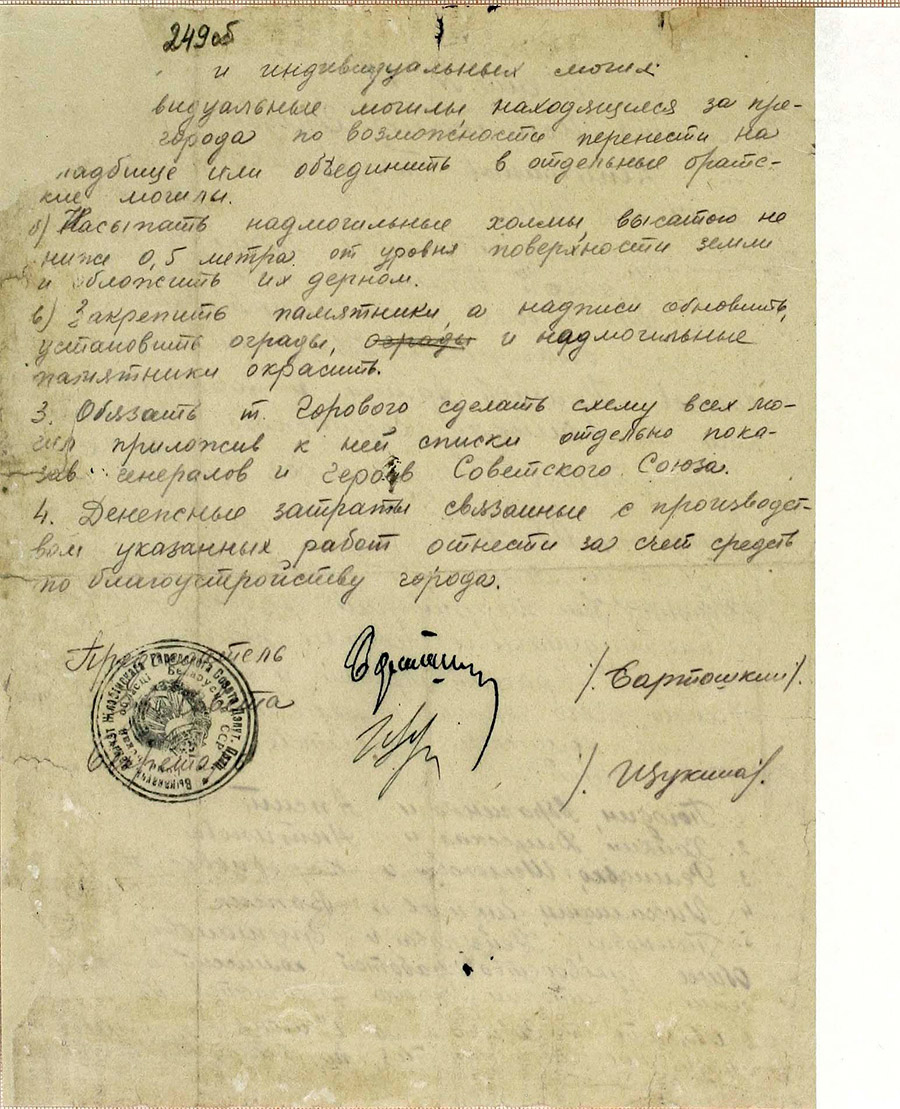 249об
и индивидуальных могил
видуальные могилы находящиеся за пре-
города по возможности перенести на
ладбище или объединить в отдельные братс-
кие могилы.
б) Насыпать надмогильные холмы, высатою не
ниже 0,5 метра от уровня поверхности земли
и обложить их дерном.
в) Закрепить памятники, а надписи обновить,
установить ограды, ограды и надмогильные
памятники окрасить.
3. Обязать т. Горового сделать схему всех мо-
гил приложив к ней списки отдельно пока-
зав генералов и героев Советского Союза.
4. Денежные затраты связанные с производст-
вом указанных работ отнести за счет средств
по благоустройству города.
/. Барташкин/.
/ Щукина/.